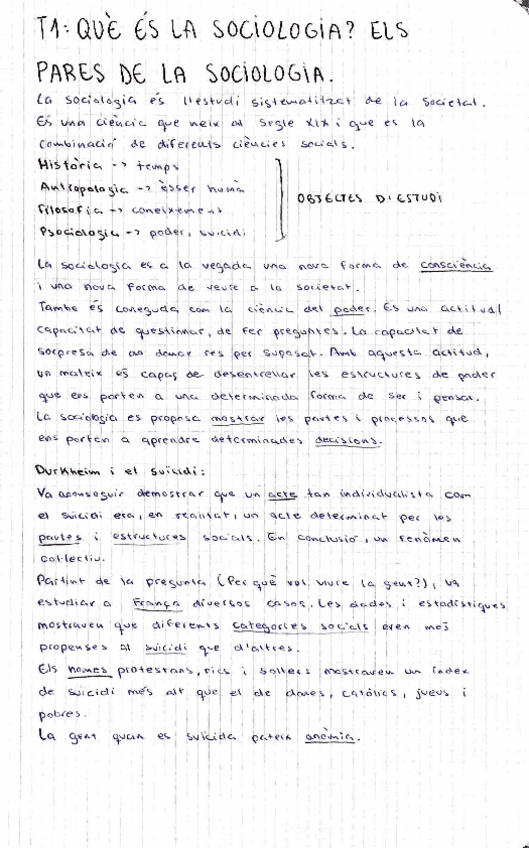 T1: QUÈ ÉS LA SOCIOLOGIA? ELS
PARES DE LA SOCIOLOGIA.
La sociologia és l'estudi sistematitzat de la societat.
És una ciència que neix al segle XIX i que es la
combinació de diferents ciències socials.
Història -> temps
Antropologia -> ésser humà
Filosofia -> coneixement
Psociologia -> poder, suicidi
OBJECTES D'ESTUDI
La sociologia es a la vegada una nova forma de consciència
i una nova forma de veure a la societat.
També és coneguda com la ciència del poder. És una actitud
capacitat de questionar, de fer preguntes. La capacitat de
sorpresa de no donar res per suposat. Amb aquesta actitud,
un mateix és capaç de desentrellar les estructures de poder
que ens porten a una determinada forma de ser i pensar.
La sociologia es proposa mostrar les pautes i processos que
ens porten a aprendre determinades decisions.
Durkheim i el suïcidi:
Va aconseguir demostrar que un acte tan individualista com
el suïcidi era, en realitat, un acte determinat per les
pautes i estructures socials. En conclusió, un fenòmen
col·lectiu.
Partint de la pregunta (Per què vol viure la gent?), va
estudiar a França diversos casos. Les dades i estadístiques
mostraven que diferents categories socials eren més
propenses al suïcidi que d'altres.
Els homes protestans, rics i solters mostraven un índex
de suïcidi més alt que el de dones, catòlics, jueus i
pobres.
La gent quan es suïcida pateix anòmia.